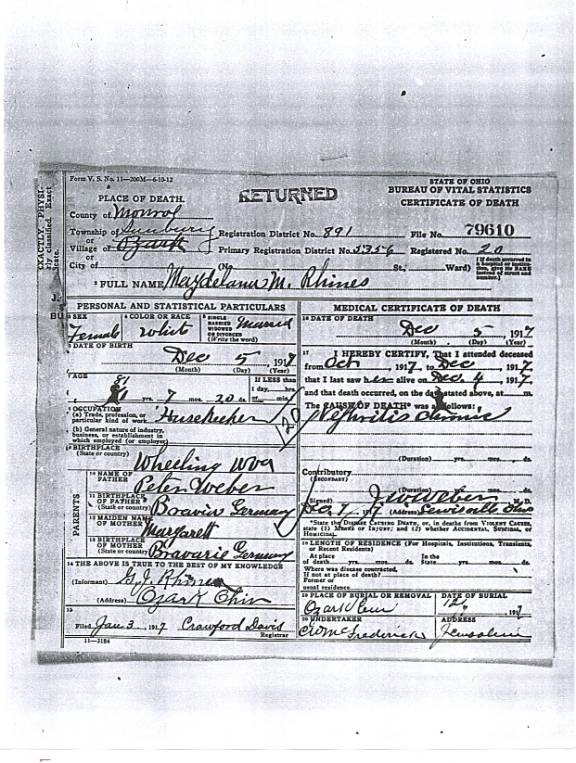 Form V. S. No. 11—200M—6-10-12
PLACE OF DEATH.
RETURNED
STATE OF OHIO
BUREAU OF VITAL STATISTICS
CERTIFICATE OF DEATH
County of Monroe
Township of Sunbury Registration District No. 891 File No. 79610
or
Village of Ozark Primary Registration District No. 5356 Registered No. 20
or
City of (No. St., Ward)
[If death occurred in a hospital or institution, give its NAME instead of street and number.]
EXACTLY. PHYSI-
rly classified. Exact
FULL NAME Magdelana M. Rhines
PERSONAL AND STATISTICAL PARTICULARS
SEX Female
COLOR OR RACE White
SINGLE MARRIED WIDOWED OR DIVORCED (Write the word) Married
DATE OF BIRTH
Dec 5, 1917
(Month) (Day) (Year)
AGE
81 yrs. 7 mos. 20 ds.
If LESS than
1 day, hrs.
or min.
OCCUPATION
(a) Trade, profession, or particular kind of work Housekeeper
(b) General nature of industry, business, or establishment in which employed (or employer)
BIRTHPLACE
(State or country)
Wheeling WVa
PARENTS
10 NAME OF FATHER Peter Weber
11 BIRTHPLACE OF FATHER (State or country) Bravia Germany
12 MAIDEN NAME OF MOTHER Margarett
13 BIRTHPLACE OF MOTHER (State or country) Bravarie Germany
14 THE ABOVE IS TRUE TO THE BEST OF MY KNOWLEDGE
(Informant) G. J. Rhines
(Address) Ozark Ohio
15
Filed Jan 3, 1917 Crawford Davis
Registrar
11—3184
MEDICAL CERTIFICATE OF DEATH
16 DATE OF DEATH
Dec 5, 1917
(Month) (Day) (Year)
17 I HEREBY CERTIFY, That I attended deceased
from Oct, 1917, to Dec, 1917,
that I last saw her alive on Dec. 4, 1917,
and that death occurred, on the date stated above, at m.
The CAUSE OF DEATH* was as follows:
Nephritis chronic
120
(Duration) yrs. mos. ds.
Contributory
(SECONDARY)
(Duration) yrs. mos. ds.
(Signed) J. W. Weber M. D.
(Address) Lewisville Ohio
*State the DISEASE CAUSING DEATH, or, in deaths from VIOLENT CAUSES, state (1) MEANS OF INJURY; and (2) whether ACCIDENTAL, SUICIDAL, or HOMICIDAL.
18 LENGTH OF RESIDENCE (For Hospitals, Institutions, Transients, or Recent Residents)
At place of death yrs. mos. ds. In the State yrs. mos. ds.
Where was disease contracted, If not at place of death?
Former or usual residence
19 PLACE OF BURIAL OR REMOVAL Ozark Cem
DATE OF BURIAL 1917
20 UNDERTAKER Frederick
ADDRESS Jerusalem